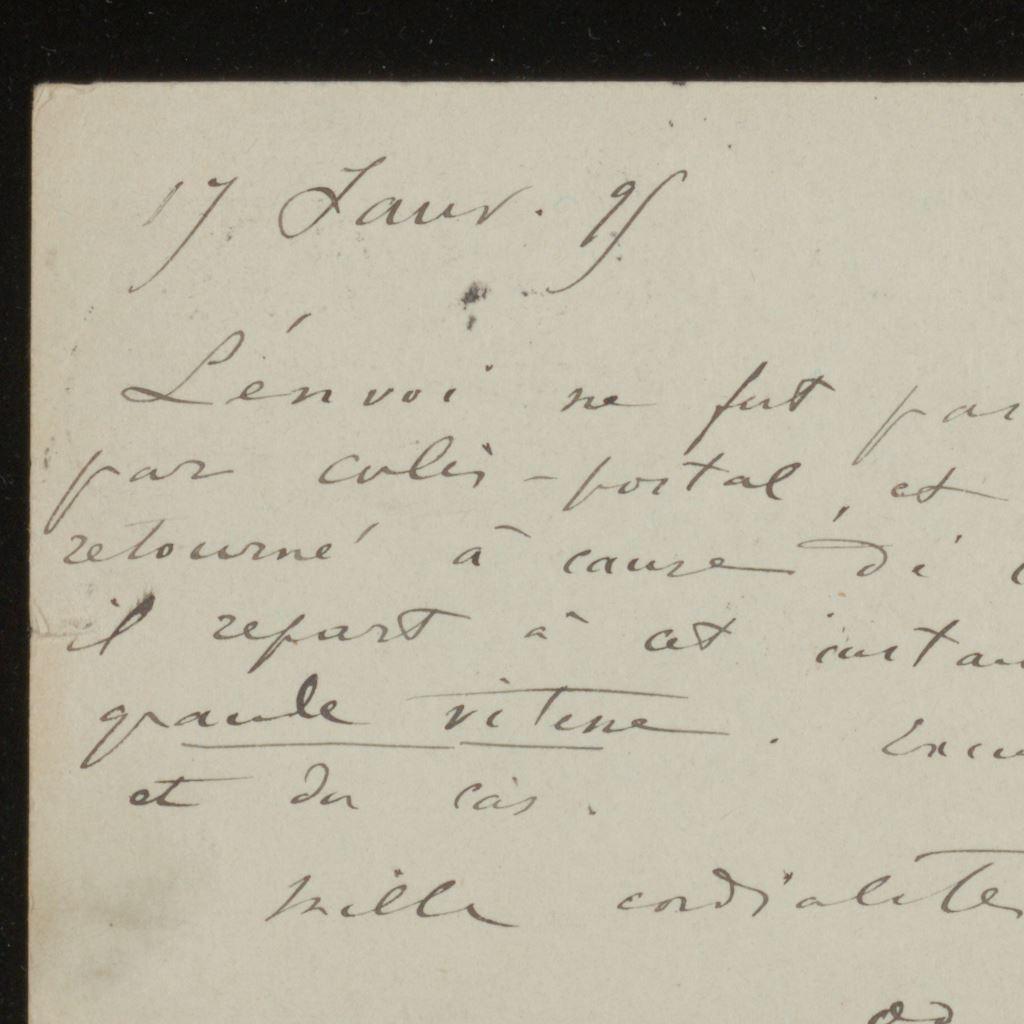 17 Janv. 95
L'énvoi ne fut pas
par colis-postal, et
retourné à cause di
il repart à cet instan
grande vitesse. Excu
et du cas.
Mille cordialités